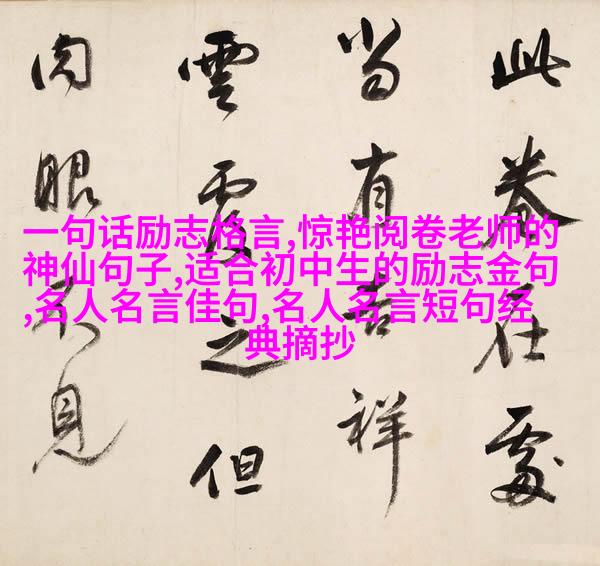 一句话励志格言,惊艳阅卷老师的
神仙句子,适合初中生的励志金句
,名人名言佳句,名人名言短句经
典摘抄
此卷在處
當有吉祥
雲覆之但
肉眼不見